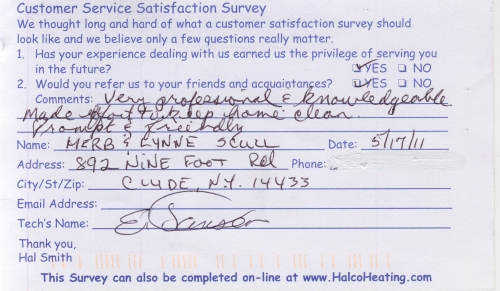 Customer Service Satisfaction Survey
We thought long and hard of what a customer satisfaction survey should
look like and we believe only a few questions really matter.
1. Has your experience dealing with us earned us the privilege of serving you
in the future? ☑ YES ☐ NO
2. Would you refer us to your friends and acquaintances? ☑ YES ☐ NO
Comments: Very professional & knowledgeable
Made effort to keep home clean.
Prompt & Friendly
Name: HERB & LYNNE SCULL Date: 5/17/11
Address: 892 NINE FOOT Rd Phone:
City/St/Zip: CLYDE, N.Y. 14433
Email Address:
Tech's Name: E
Thank you,
Hal Smith
This Survey can also be completed on-line at www.HalcoHeating.com